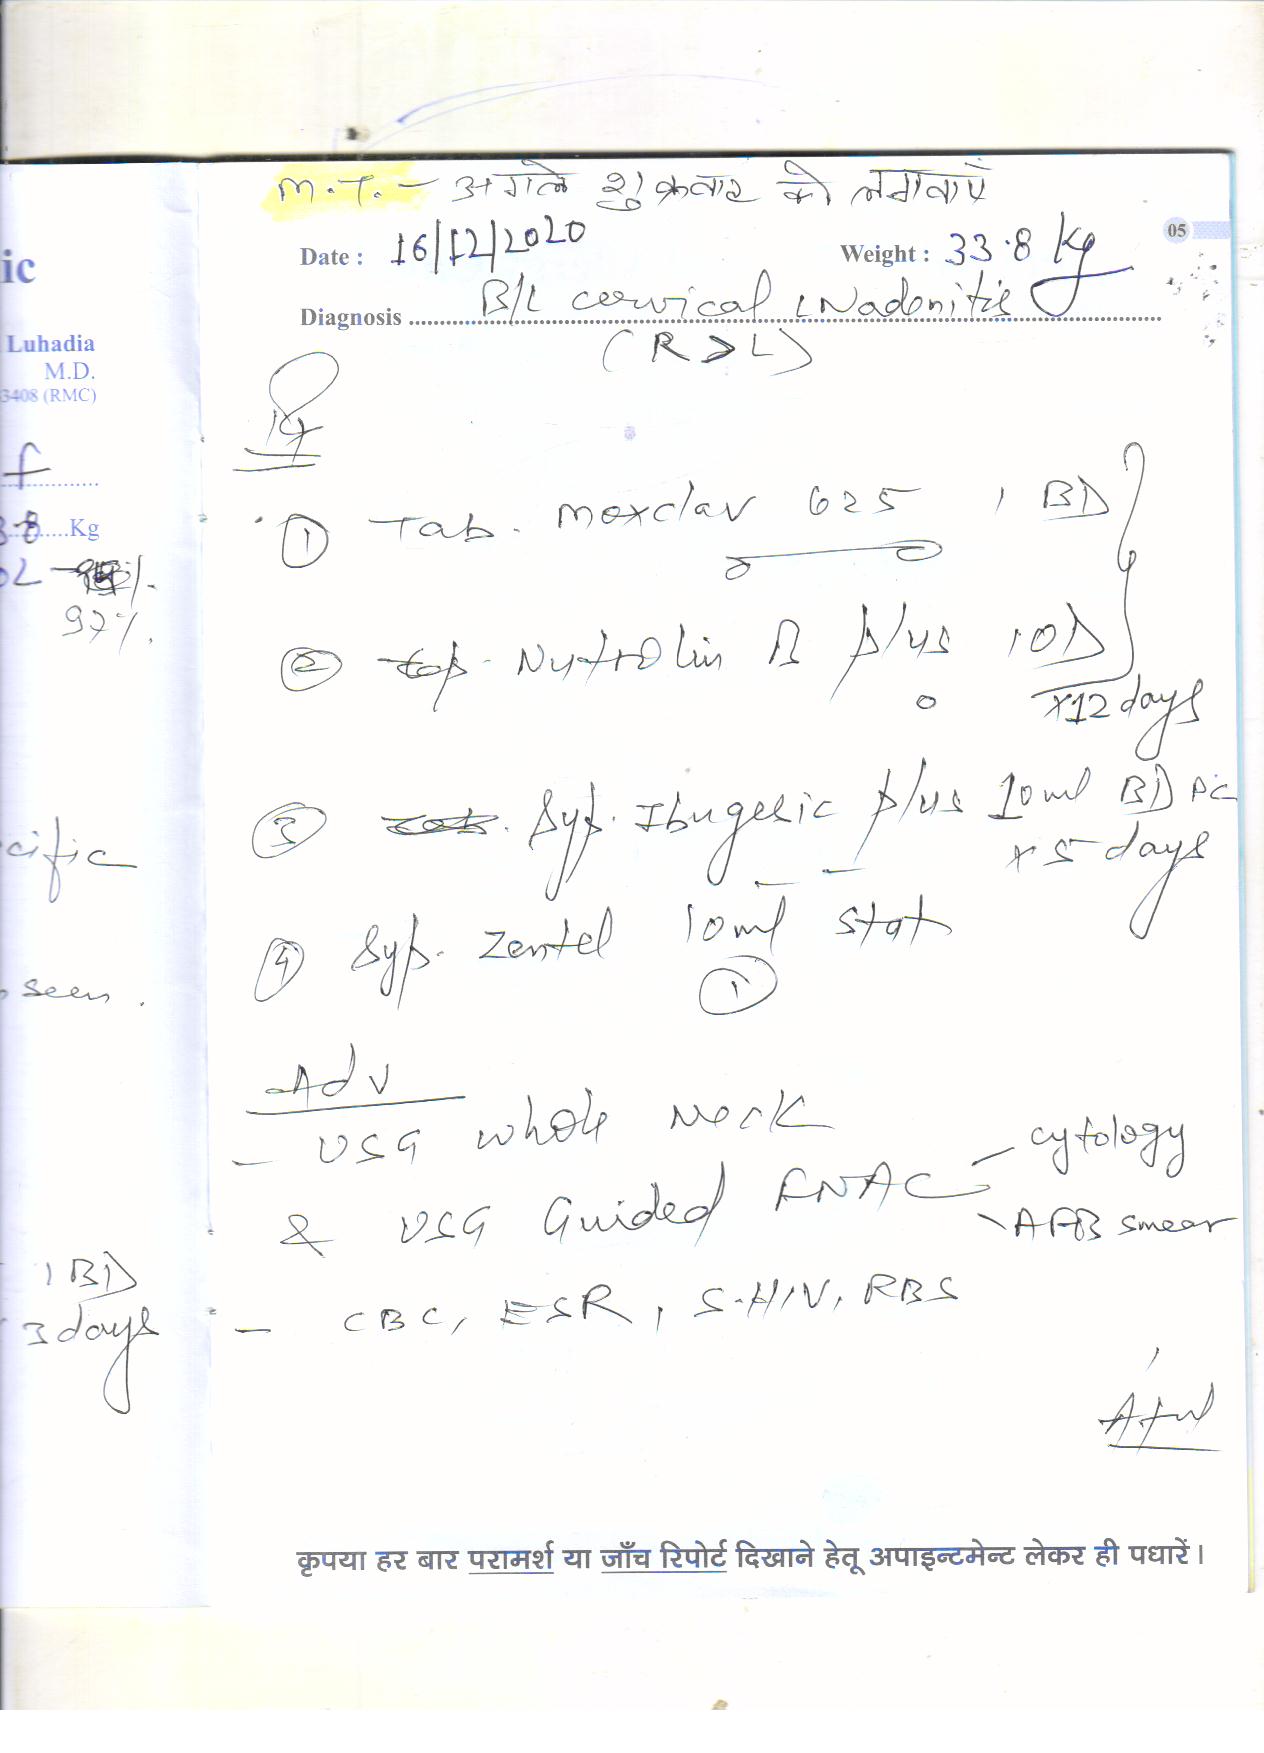 M.T. - अगले शुक्रवार को लगवायें
05
Date : 16/12/2020 Weight : 33.8 Kg
Diagnosis B/L cervical LNadenitis
(R > L)
① Tab. Moxclav 625 1 BD
② Nutrolin B plus 1 OD
x12 days
③ Syp. Ibugesic plus 10ml BD PC
x 5 days
④ Syp. Zentel 10ml stat
①
Adv
- USG whole Neck
& USG Guided FNAC - cytology
- AFB smear
- CBC, ESR, S.HIV, RBS
कृपया हर बार परामर्श या जाँच रिपोर्ट दिखाने हेतू अपाइन्टमेन्ट लेकर ही पधारें।
ic
Luhadia
M.D.
3408 (RMC)
f
8 Kg
97%.
cific
seen.
1 BD
3 days